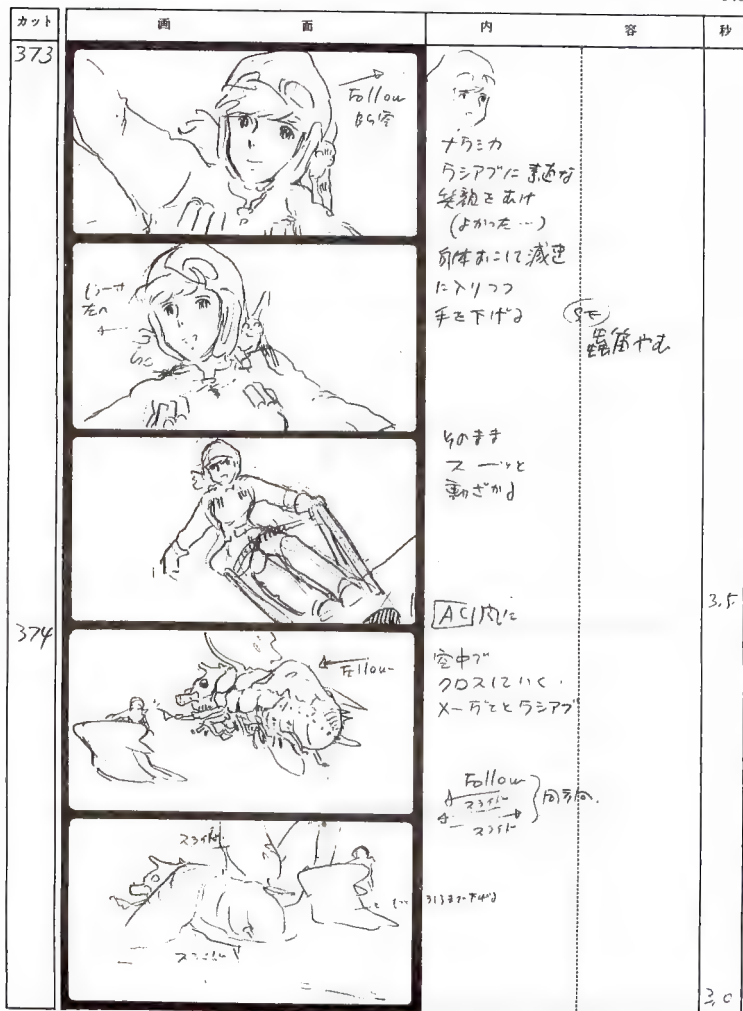 カット 画面 内容 秒
373
Follow
BG空
ナウシカ
ウシアブに素直な
笑顔をむけ
(よかった…)
身体おこして減速
に入りつつ
手を下げる
SE
蟲笛やむ
左へ
そのまま
スーッと
遠ざかる
3.5
374
Follow
空中で
クロスしていく
メーヴェとウシアブ
Follow
スライド
スライド
同方向
スライド
スライド
3.0